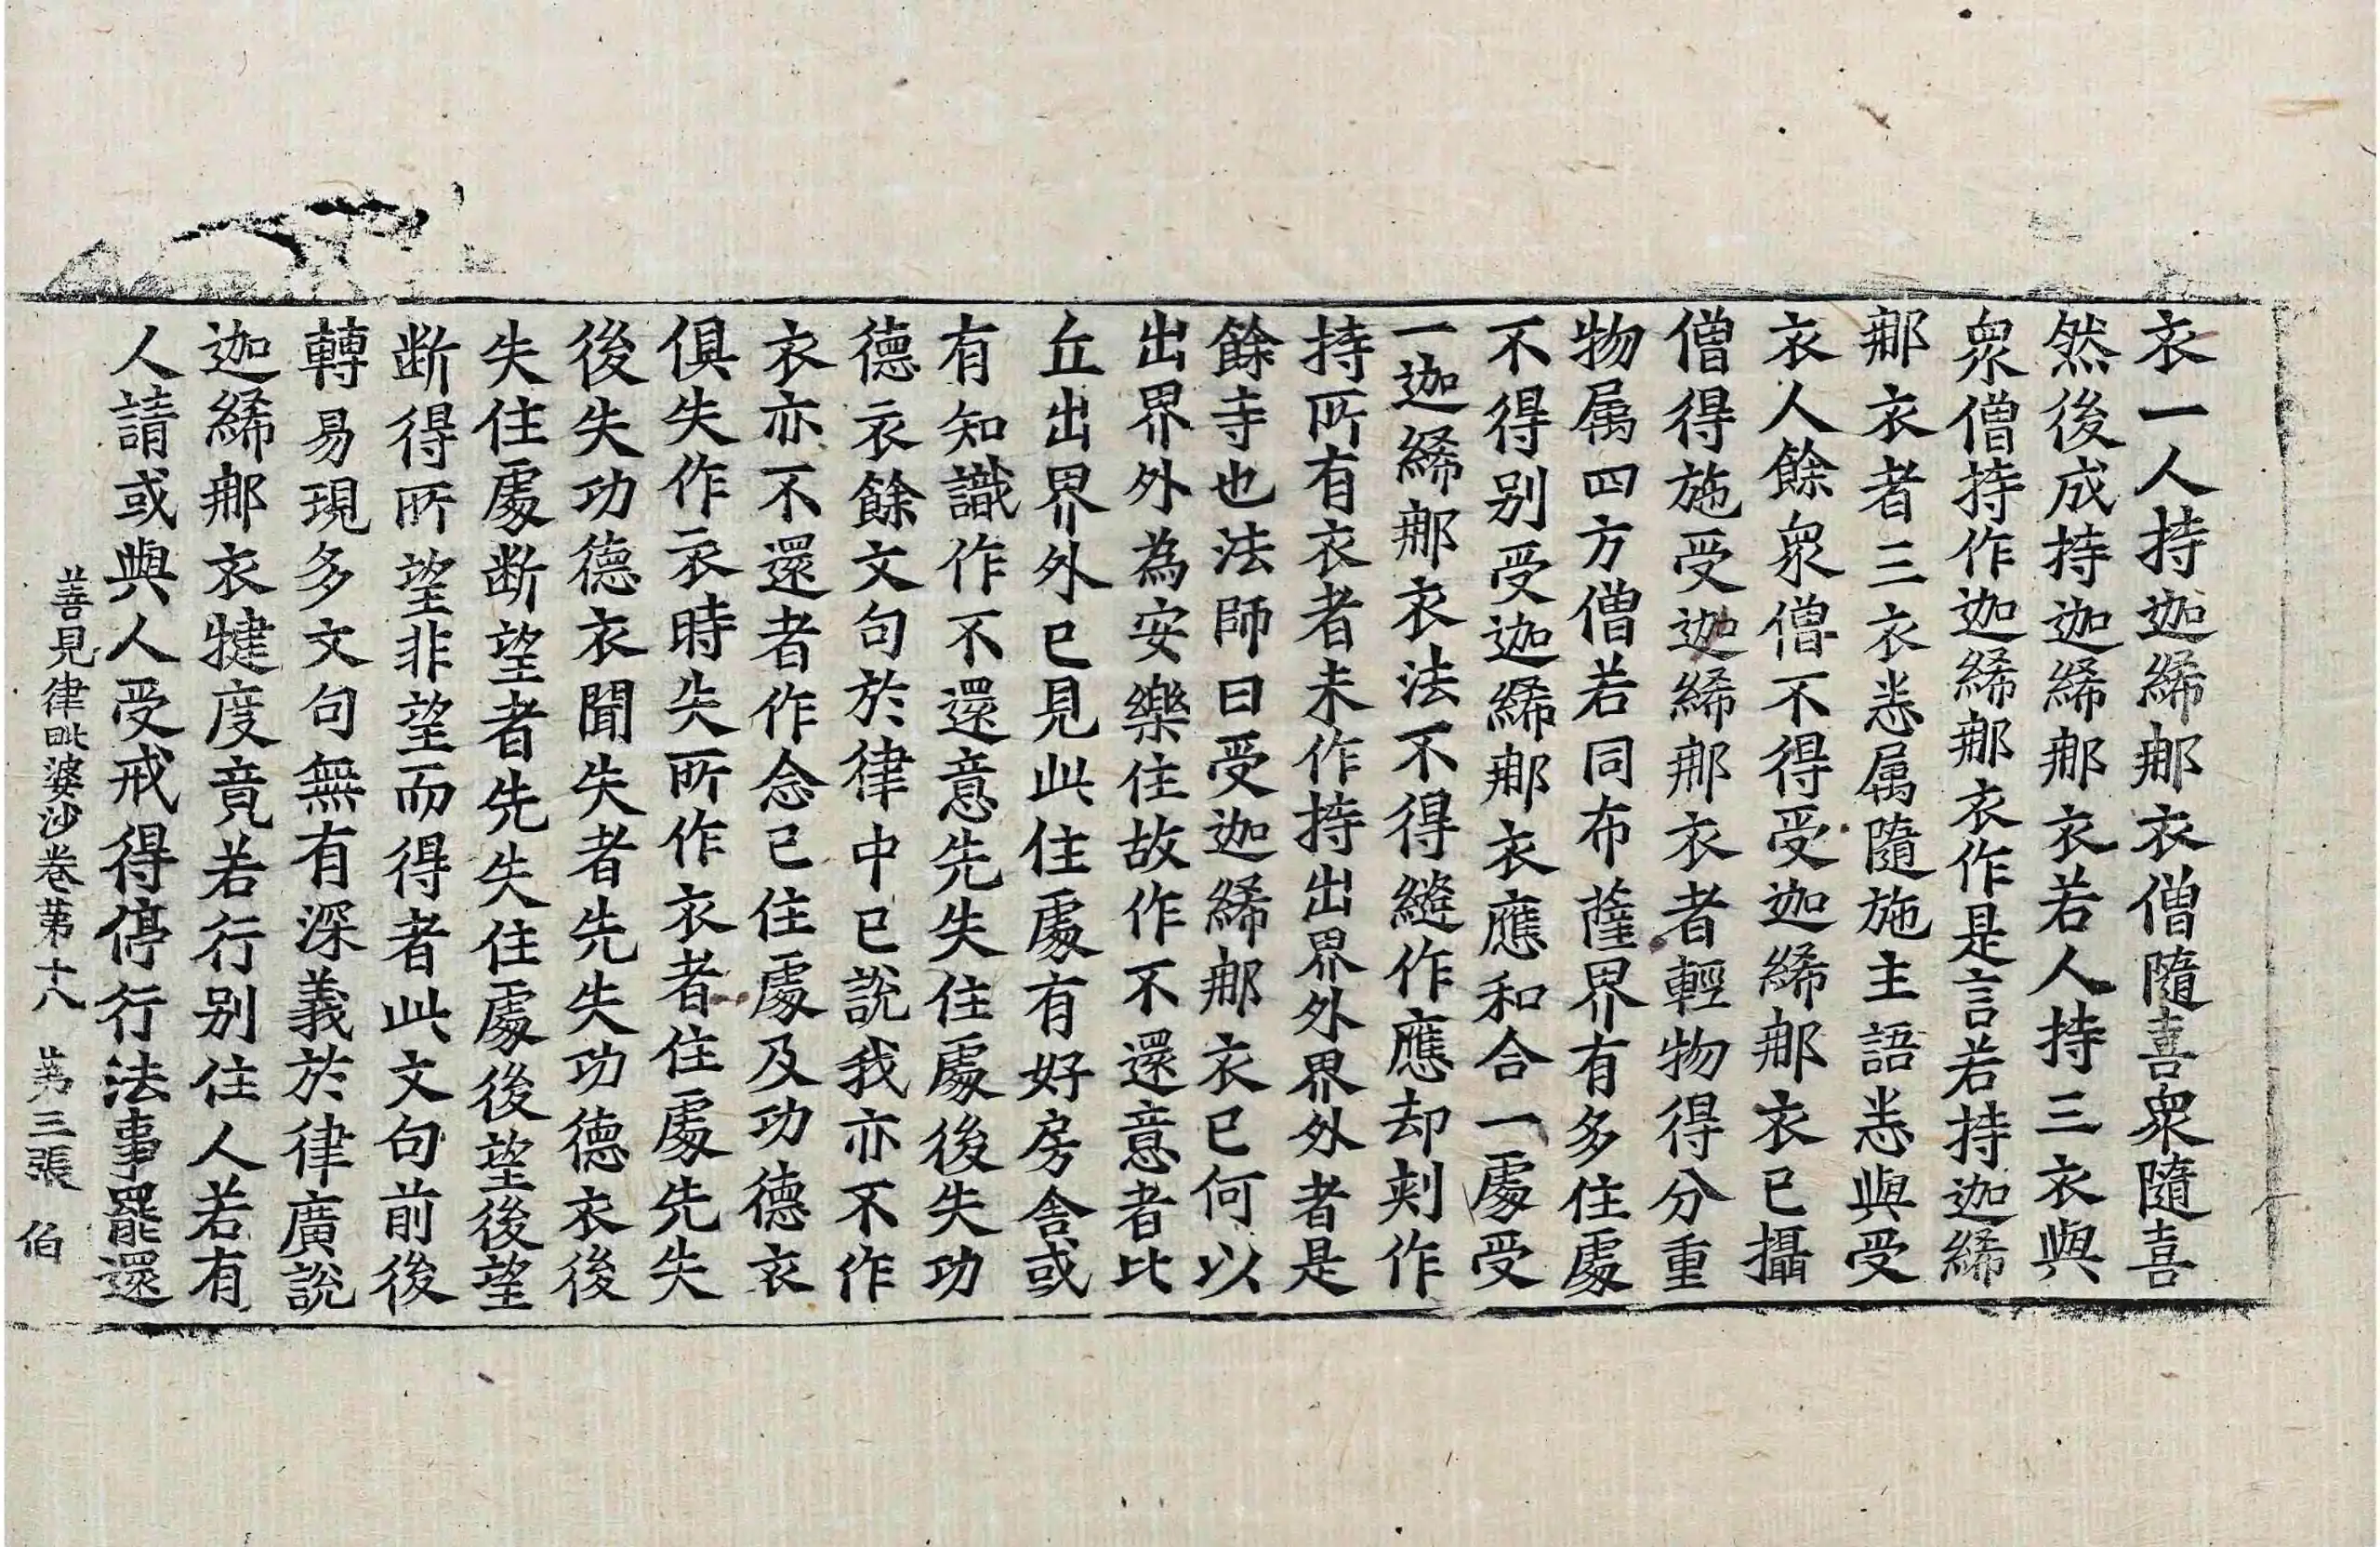 衣一人持迦絺那衣僧隨喜衆隨喜
然後成持迦絺那衣若人持三衣與
衆僧持作迦絺那衣作是言若持迦絺
那衣者三衣悉属隨施主語悉與受
衣人餘衆僧不得受迦絺那衣已攝
僧得施受迦絺那衣者輕物得分重
物属四方僧若同布薩界有多住處
不得别受迦絺那衣應和合一處受
一迦絺那衣法不得縫作應却刾作
持所有衣者未作持出界外界外者是
餘寺也法師曰受迦絺那衣已何以
出界外為安樂住故作不還意者比
丘出界外已見此住處有好房舎或
有知識作不還意先失住處後失功
德衣餘文句於律中已說我亦不作
衣亦不還者作念已住處及功德衣
俱失作衣時失所作衣者住處先失
後失功德衣聞失者先失功德衣後
失住處断望者先失住處後望後望
断得所望非望而得者此文句前後
轉易現多文句無有深義於律廣說
迦絺那衣犍度竟若行别住人若有
人請或與人受戒得停行法事罷還
善見律毗婆沙卷苐十八 苐三張 伯